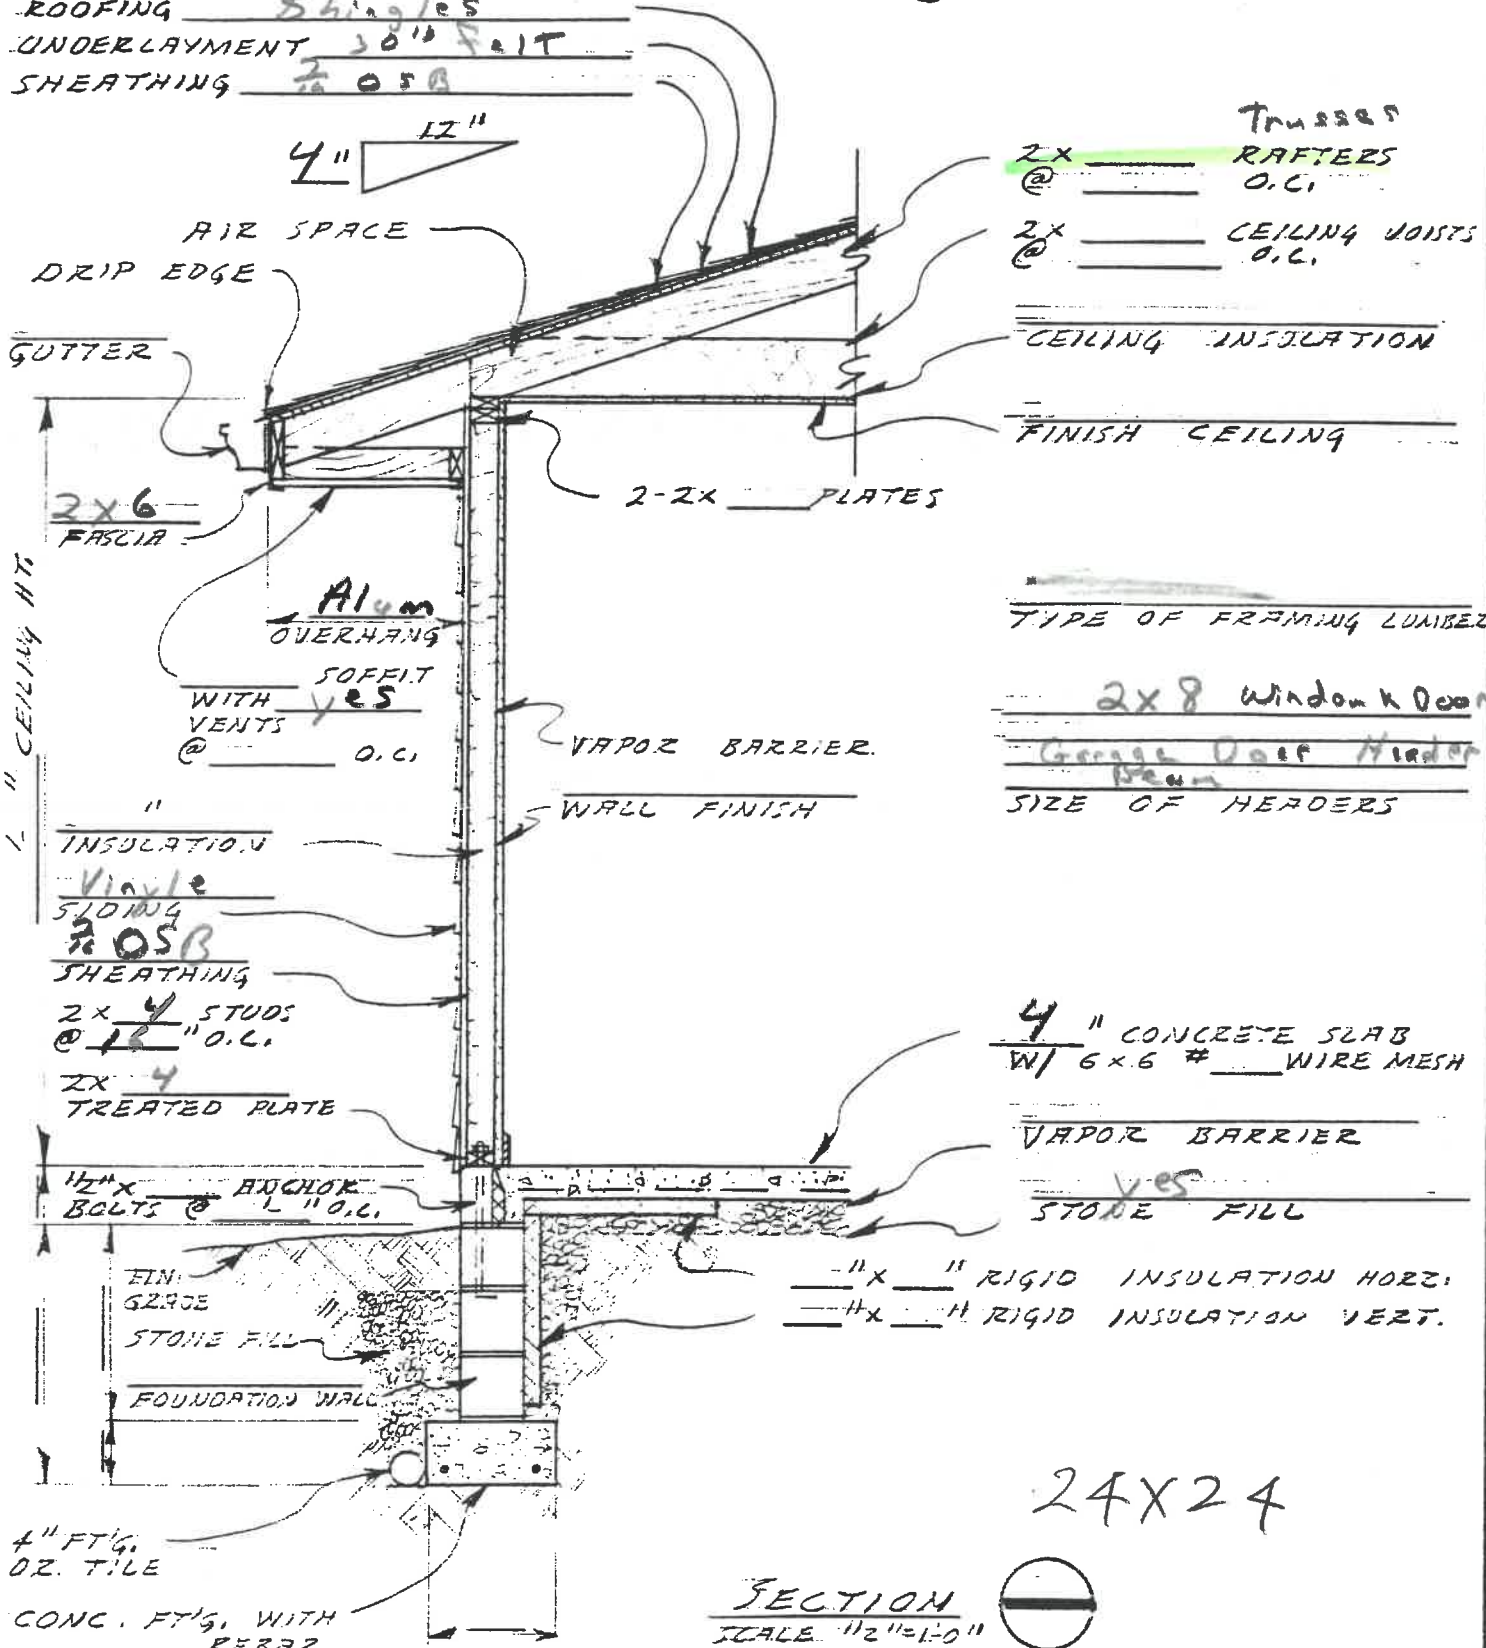 ROOFING Shingles
UNDERLAYMENT 30# Felt
SHEATHING 7/16 OSB
12"
4"
AIR SPACE
DRIP EDGE
GUTTER
2x6
FASCIA
Alum
OVERHANG
SOFFIT
WITH yes
VENTS
@ O.C.
" CEILING HT.
"
INSULATION
Vinyle
SIDING
7/16 OSB
SHEATHING
2x 4 STUDS
@ 16 " O.C.
2x 4
TREATED PLATE
1/2"x ANCHOR
BOLTS @ ' " O.C.
FIN.
GRADE
STONE FILL
FOUNDATION WALL
4" FT'G.
DR. TILE
CONC. FT'G. WITH
REBAR
2-2x PLATES
VAPOR BARRIER.
WALL FINISH
Trusses
2x RAFTERS
@ O.C.
2x CEILING JOISTS
@ O.C.
CEILING INSULATION
FINISH CEILING
TYPE OF FRAMING LUMBER
2x8 Window & Door
Garage Door Header
Beam
SIZE OF HEADERS
4 " CONCRETE SLAB
W/ 6x6 # WIRE MESH
VAPOR BARRIER
yes
STONE FILL
"x " RIGID INSULATION HORZ.
"x " RIGID INSULATION VERT.
24X24
SECTION
SCALE 1/2"=1'-0"